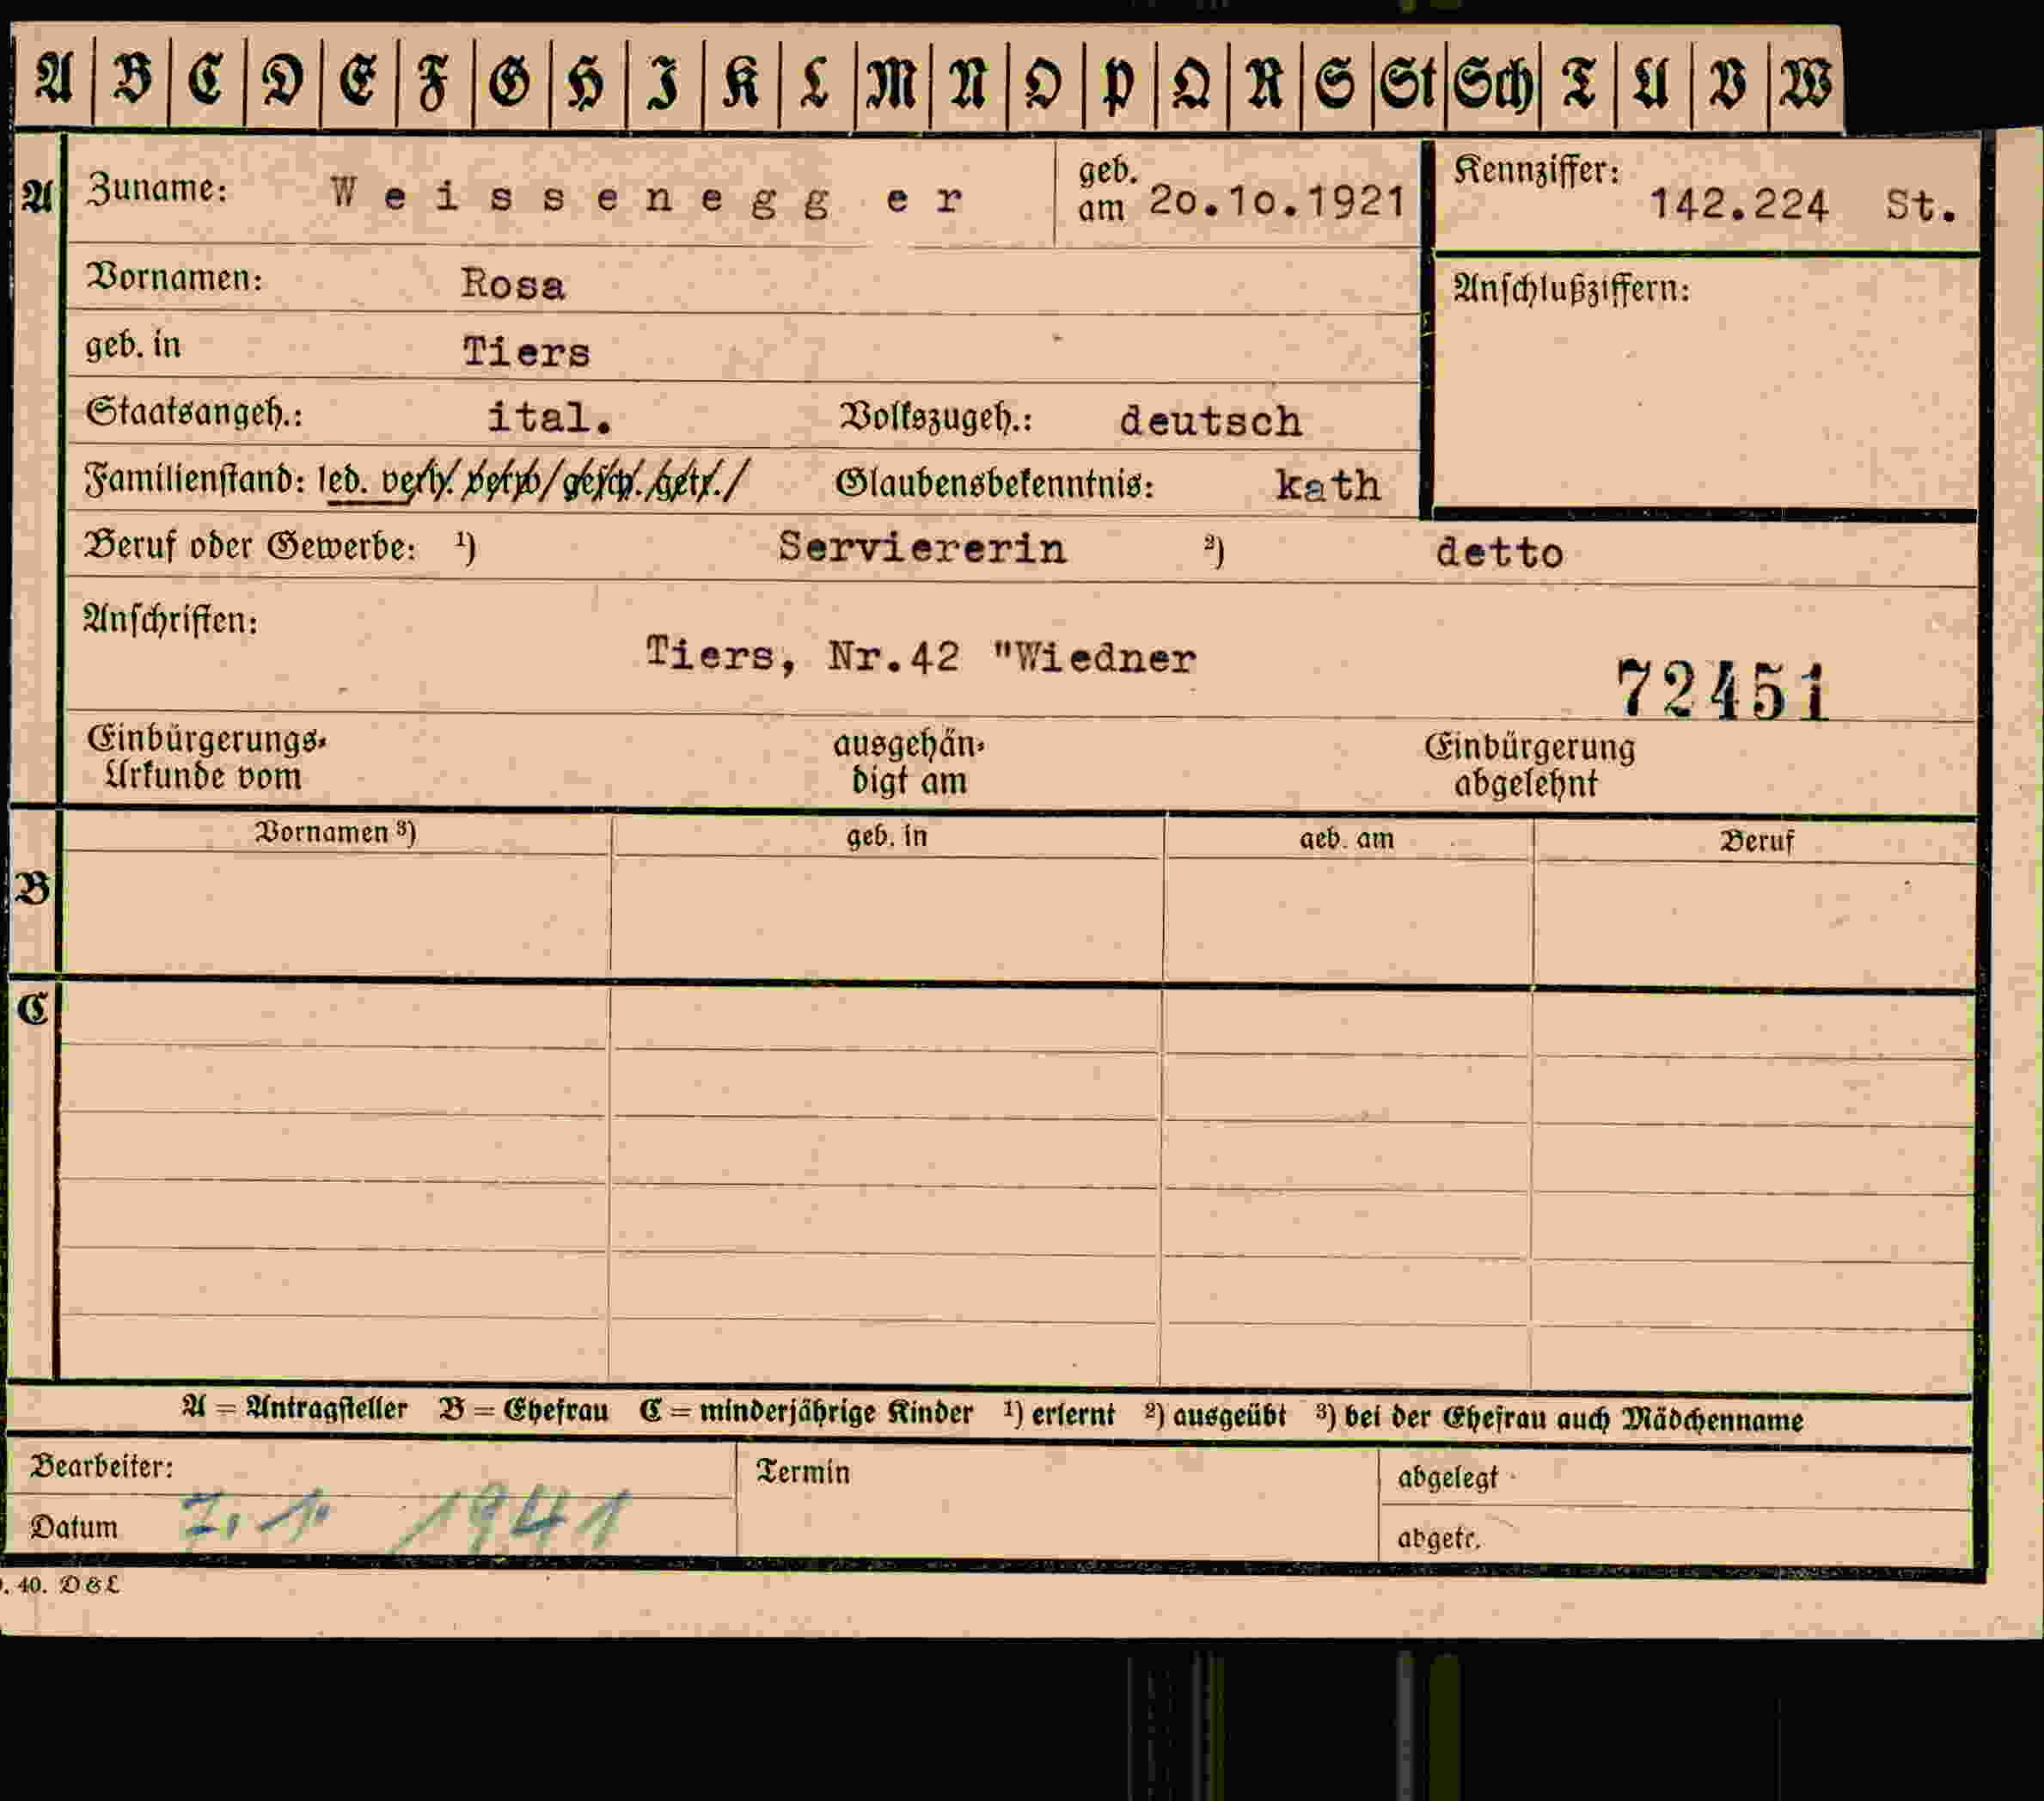 A B C D E F G H I K L M N O P Q R S St Sch T U V W
A Zuname: Weissenegger geb. am 20.10.1921 Kennziffer: 142.224 St.
Vornamen: Rosa Anschlußziffern:
geb. in Tiers
Staatsangeh.: ital. Volkszugeh.: deutsch
Familienstand: led. verh. verw./gesch./getr./ Glaubensbekenntnis: kath
Beruf oder Gewerbe: ¹) Serviererin ²) detto
Anschriften:
Tiers, Nr.42 "Wiedner
72451
Einbürgerungs-Urkunde vom ausgehändigt am Einbürgerung abgelehnt
B Vornamen ³) geb. in geb. am Beruf
C
A = Antragsteller B = Ehefrau C = minderjährige Kinder ¹) erlernt ²) ausgeübt ³) bei der Ehefrau auch Mädchenname
Bearbeiter: Termin abgelegt
Datum 7.1. 1941 abgetr.
. 40. D & L